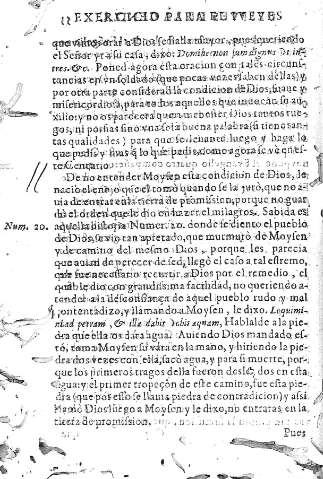 EXERCICIO PARA IVEVES
que vimos orar a Dios señalla mayor, pues queriendo
el Señor yr a su casa, dixo: Domine non sum dignus vt in-
tres. &c. Poned agora esta oracion con tales circuns-
tancias en vn soldado (que pocas vezes saben dellas) y
por otra parte considerad la condicion de Dios, suaue y
misericordiosa, para todos aquellos que inuocan su au-
xilio: y no os parecera que son menester tantos rue-
gos, ni porfias sino vna sola buena palabra (si tiene tan-
tas qualidades) para que se leuante luego y haga lo
que pudis y mas q̃ lo que pedis: como agora se ve en es-
te Centurio.
De no entender Moysen esta condicion de Dios, le
nacio el enojo que el tomó quando se la juró, que no a-
uia de entrar en la tierra de promission, porque no guar-
dá el orden que le dio en hazer el milagro. Sabida es
Num. 20. aquella historia Numer. 20. donde sediento el pueblo
de Dios, se vio tan apretado, que murmuró de Moysen
y de camino del mesmo Dios, porque les parecia
que auian de perecer de sed, llegó el caso a tal estremo,
que fue necessario recurrir a Dios por el remedio, el
qual le dio con grandissima facilidad, no queriendo a-
tender a la desconfiança de aquel pueblo rudo y mal
contentadizo, y llamando a Moysen, le dixo. Loquimi-
ni ad petram, & illa dabit vobis aquam, Hablalde a la pie-
dra que ella os dará agua. Auiendo Dios mandado es-
to, toma Moysen su vara en la mano, y hiriendo la pie-
dra dos vezes con ella, sacò agua, y para si muerte, por-
que los primeros tragos della fueron desde, dos en esta
agua: y el primer tropeçon de este camino, fue esta pie-
dra (que por esso se llama piedra de contradicion) y assi
llamó Dios luego a Moysen y le dixo, no entraras en la
tierra de promission
Pues